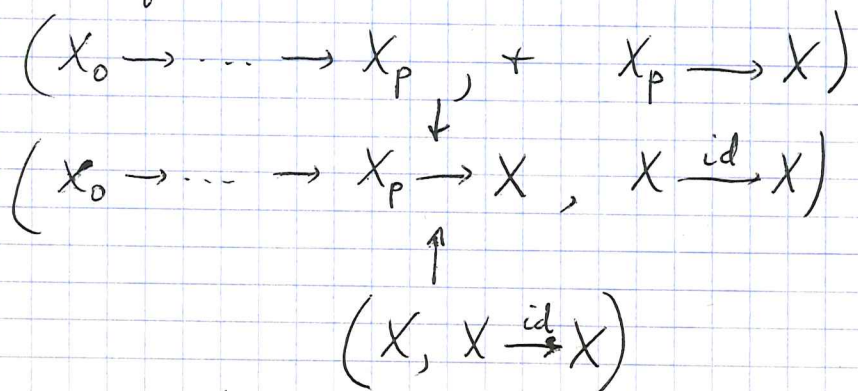 (X₀ → ... → Xₚ , + Xₚ → X)
↓
(X₀ → ... → Xₚ → X , X id→ X)
↑
(X, X id→ X)